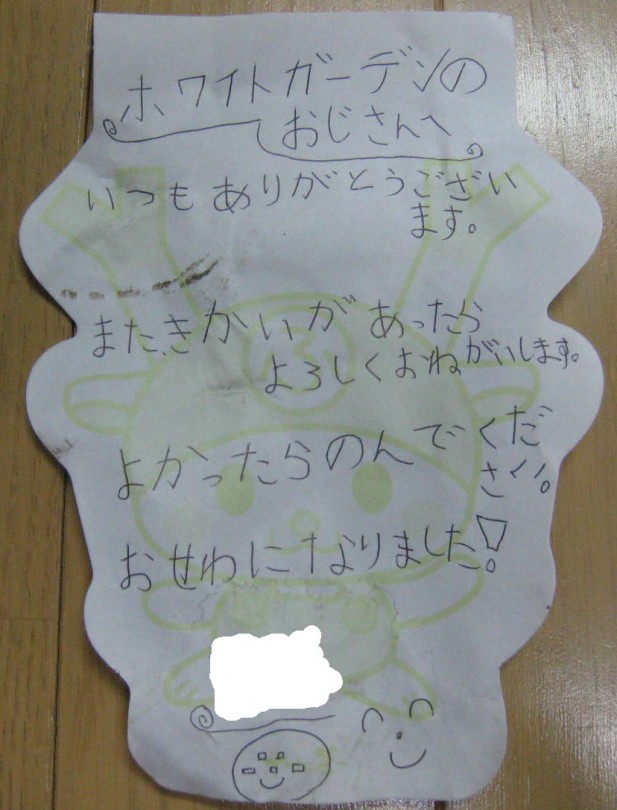 ホワイトガーデンの
おじさんへ
いつもありがとうござい
ます。
また、きかいがあったら
よろしくおねがいします。
よかったらのんでくだ
さい。
おせわになりました!